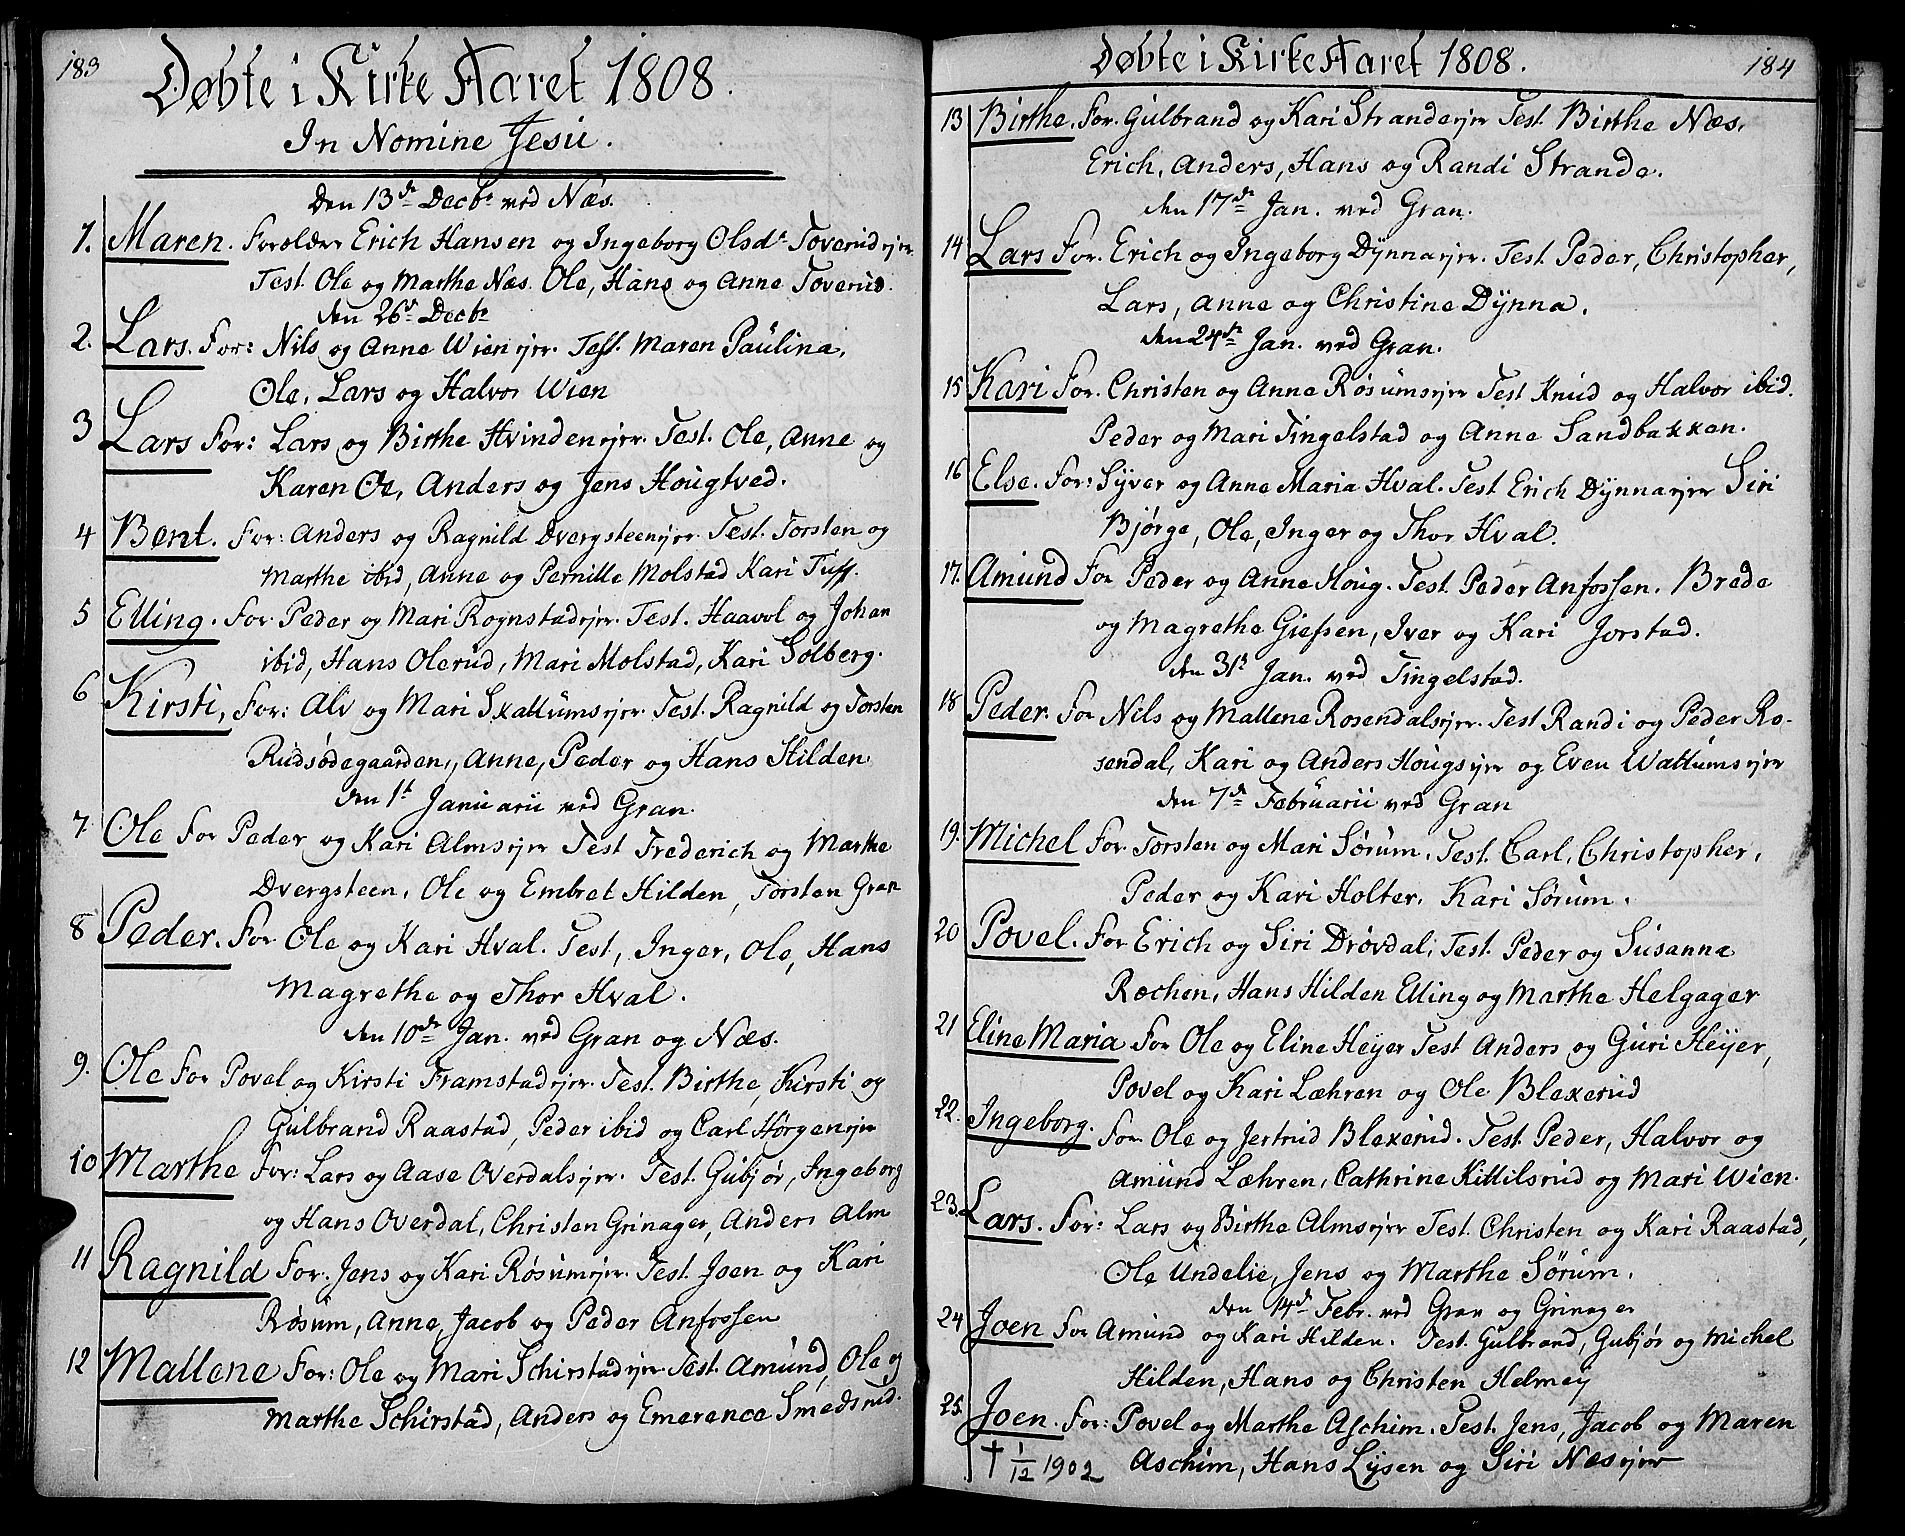 183
Døbte i Kirke Aaret 1808.
In Nomine Jesu.
Den 13de Decbr ved Næs.
1. Maren. Forældre Erich Hansen og Ingeborg Olsdr Toverudejer
Test. Ole og Marthe Næs. Ole, Hans og Anne Toverud.
den 26de Decbr
2. Lars. For: Nils og Anne Wien ejer. Test. Maren Paulina,
Ole, Lars og Halvor Wien
3 Lars For: Lars og Birthe Hvindenejer. Test. Ole, Anne og
Karen Oe, Anders og Jens Hougtved.
4 Bent. For: Anders og Ragnild Dvergsteenejer. Test. Torsten og
Marthe ibid, Anne og Pernille Molstad Kari Tuff.
5 Elling. For. Peder og Mari Rognstadejer. Test. Haavol og Johan
ibid, Hans Olerud, Mari Molstad, Kari Solberg.
6 Kirsti, For: Alv og Mari Skattumsejer. Test. Ragnild og Torsten
Rudsødegaarden, Anne, Peder og Hans Hilden
den 1te Januarii ved Gran.
7. Ole For Peder og Kari Almsejer Test Frederich og Marthe
Dvergsteen, Ole og Embret Hilden, Torsten Gran
8 Peder. For Ole og Kari Hval. Test, Inger, Ole, Hans
Magrethe og Thor Hval.
den 10de Jan. ved Gran og Næs.
9. Ole For Povel og Kirsti Framstadejer. Test. Birthe, Kirsti og
Gulbrand Raastad, Peder ibid og Carl Hørgenejer
10 Marthe For: Lars og Aase Overdalsejer. Test. Gubjør, Ingeborg
og Hans Overdal, Christen Grinager, Anders Alm
11 Ragnild For. Jens og Kari Røsumejer. Test. Joen og Kari
Røsum, Anne, Jacob og Peder Anfossen
12 Mallene For: Ole og Mari Schirstadejer. Test. Amund, Ole og
Marthe Schirstad, Anders og Emerence Smedsrud.
Døbte i Kirke Aaret 1808. 184
13 Birthe. For. Gulbrand og Kari Strandeejer Test. Birthe Næs,
Erich, Anders, Hans og Randi Strande.
den 17de Jan. ved Gran.
14 Lars For. Erich og Ingeborg Dynnaejer. Test. Peder, Christopher,
Lars, Anne og Christine Dynna.
den 24de Jan. ved Gran.
15 Kari For. Christen og Anne Røsumsejer Test Knud og Halvor ibid.
Peder og Mari Tingelstad og Anne Sandbakken.
16 Else. For: Syver og Anne Maria Hval. Test Erich Dynnaejer Siri
Bjørge, Ole, Inger og Thor Hval.
17. Amund For Peder og Anne Houg. Test. Peder Anfossen. Brede
og Magrethe Giefsen, Iver og Kari Jorstad.
den 31te Jan. ved Tingelstad.
18 Peder. For Nils og Mallene Rosendalsejer. Test Randi og Peder Ro-
sendal, Kari og Anders Hougsejer og Even Wattumsejer
den 7de Februarii ved Gran
19. Michel For Torsten og Mari Sørum. Test. Carl, Christopher,
Peder og Kari Holter, Kari Sørum.
20 Povel. For Erich og Siri Drøvdal, Test. Peder og Susanna
Røchen, Hans Hilden Elling og Marthe Helgager
21 Eline Maria For Ole og Eline Heyer Test Anders og Guri Heyer,
Povel og Kari Læhren og Ole Blexerud
22. Ingeborg. For Ole og Jertrud Blexerud. Test. Peder, Halvor og
Amund Læhren, Cathrine Kittilsrud og Mari Wien.
23. Lars. For: Lars og Birthe Almsejer Test. Christen og Kari Raastad,
Ole Undelie, Jens og Marthe Sørum.
den 14de Febr. ved Gran og Grinager
24 Joen For Amund og Kari Hilden. Test. Gulbrand, Gubjør og Michel
Hilden, Hans og Christen Helmey
25. Joen. For: Povel og Marthe Aschim. Test. Jens, Jacob og Maren
† 1/12 1902 Aschim, Hans Lysen og Siri Næsejer